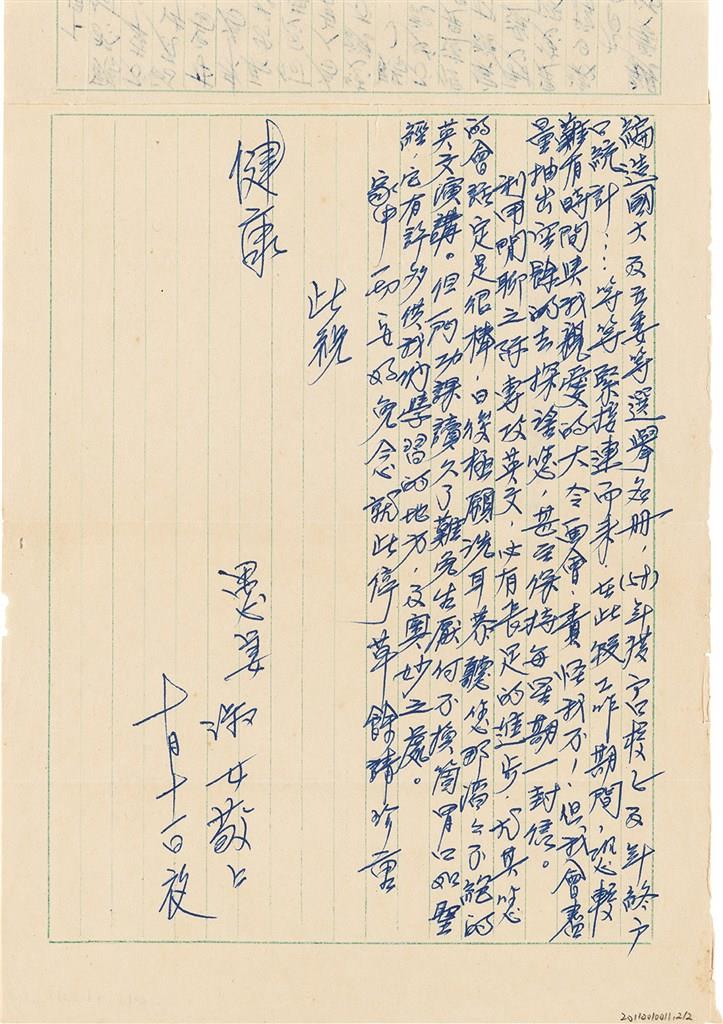 編造國大及立委等選舉名冊，(58)年後官校七及年終戶
口統計…等等緊接連而來，在此段工作期間，恐較
難有時間與我親愛的大令面會，責怪我不，但我會盡
量抽出空餘時去探望您，甚至保持每星期一封信。
利用閒聊之際專攻英文，必有長足的進步，尤其您
的會話定是很棒，日後極願洗耳恭聽您那滔々不絕的
英文演講。但一門功課讀久了難免生厭何不換箇胃口如聖
經，它有許多供我們學習的地方，及奧妙之處。
家中一切安好免念就此停草餘請珍重
此祝
健康
愚妻淑女敬上
十月十一日夜
20110010011.2/2